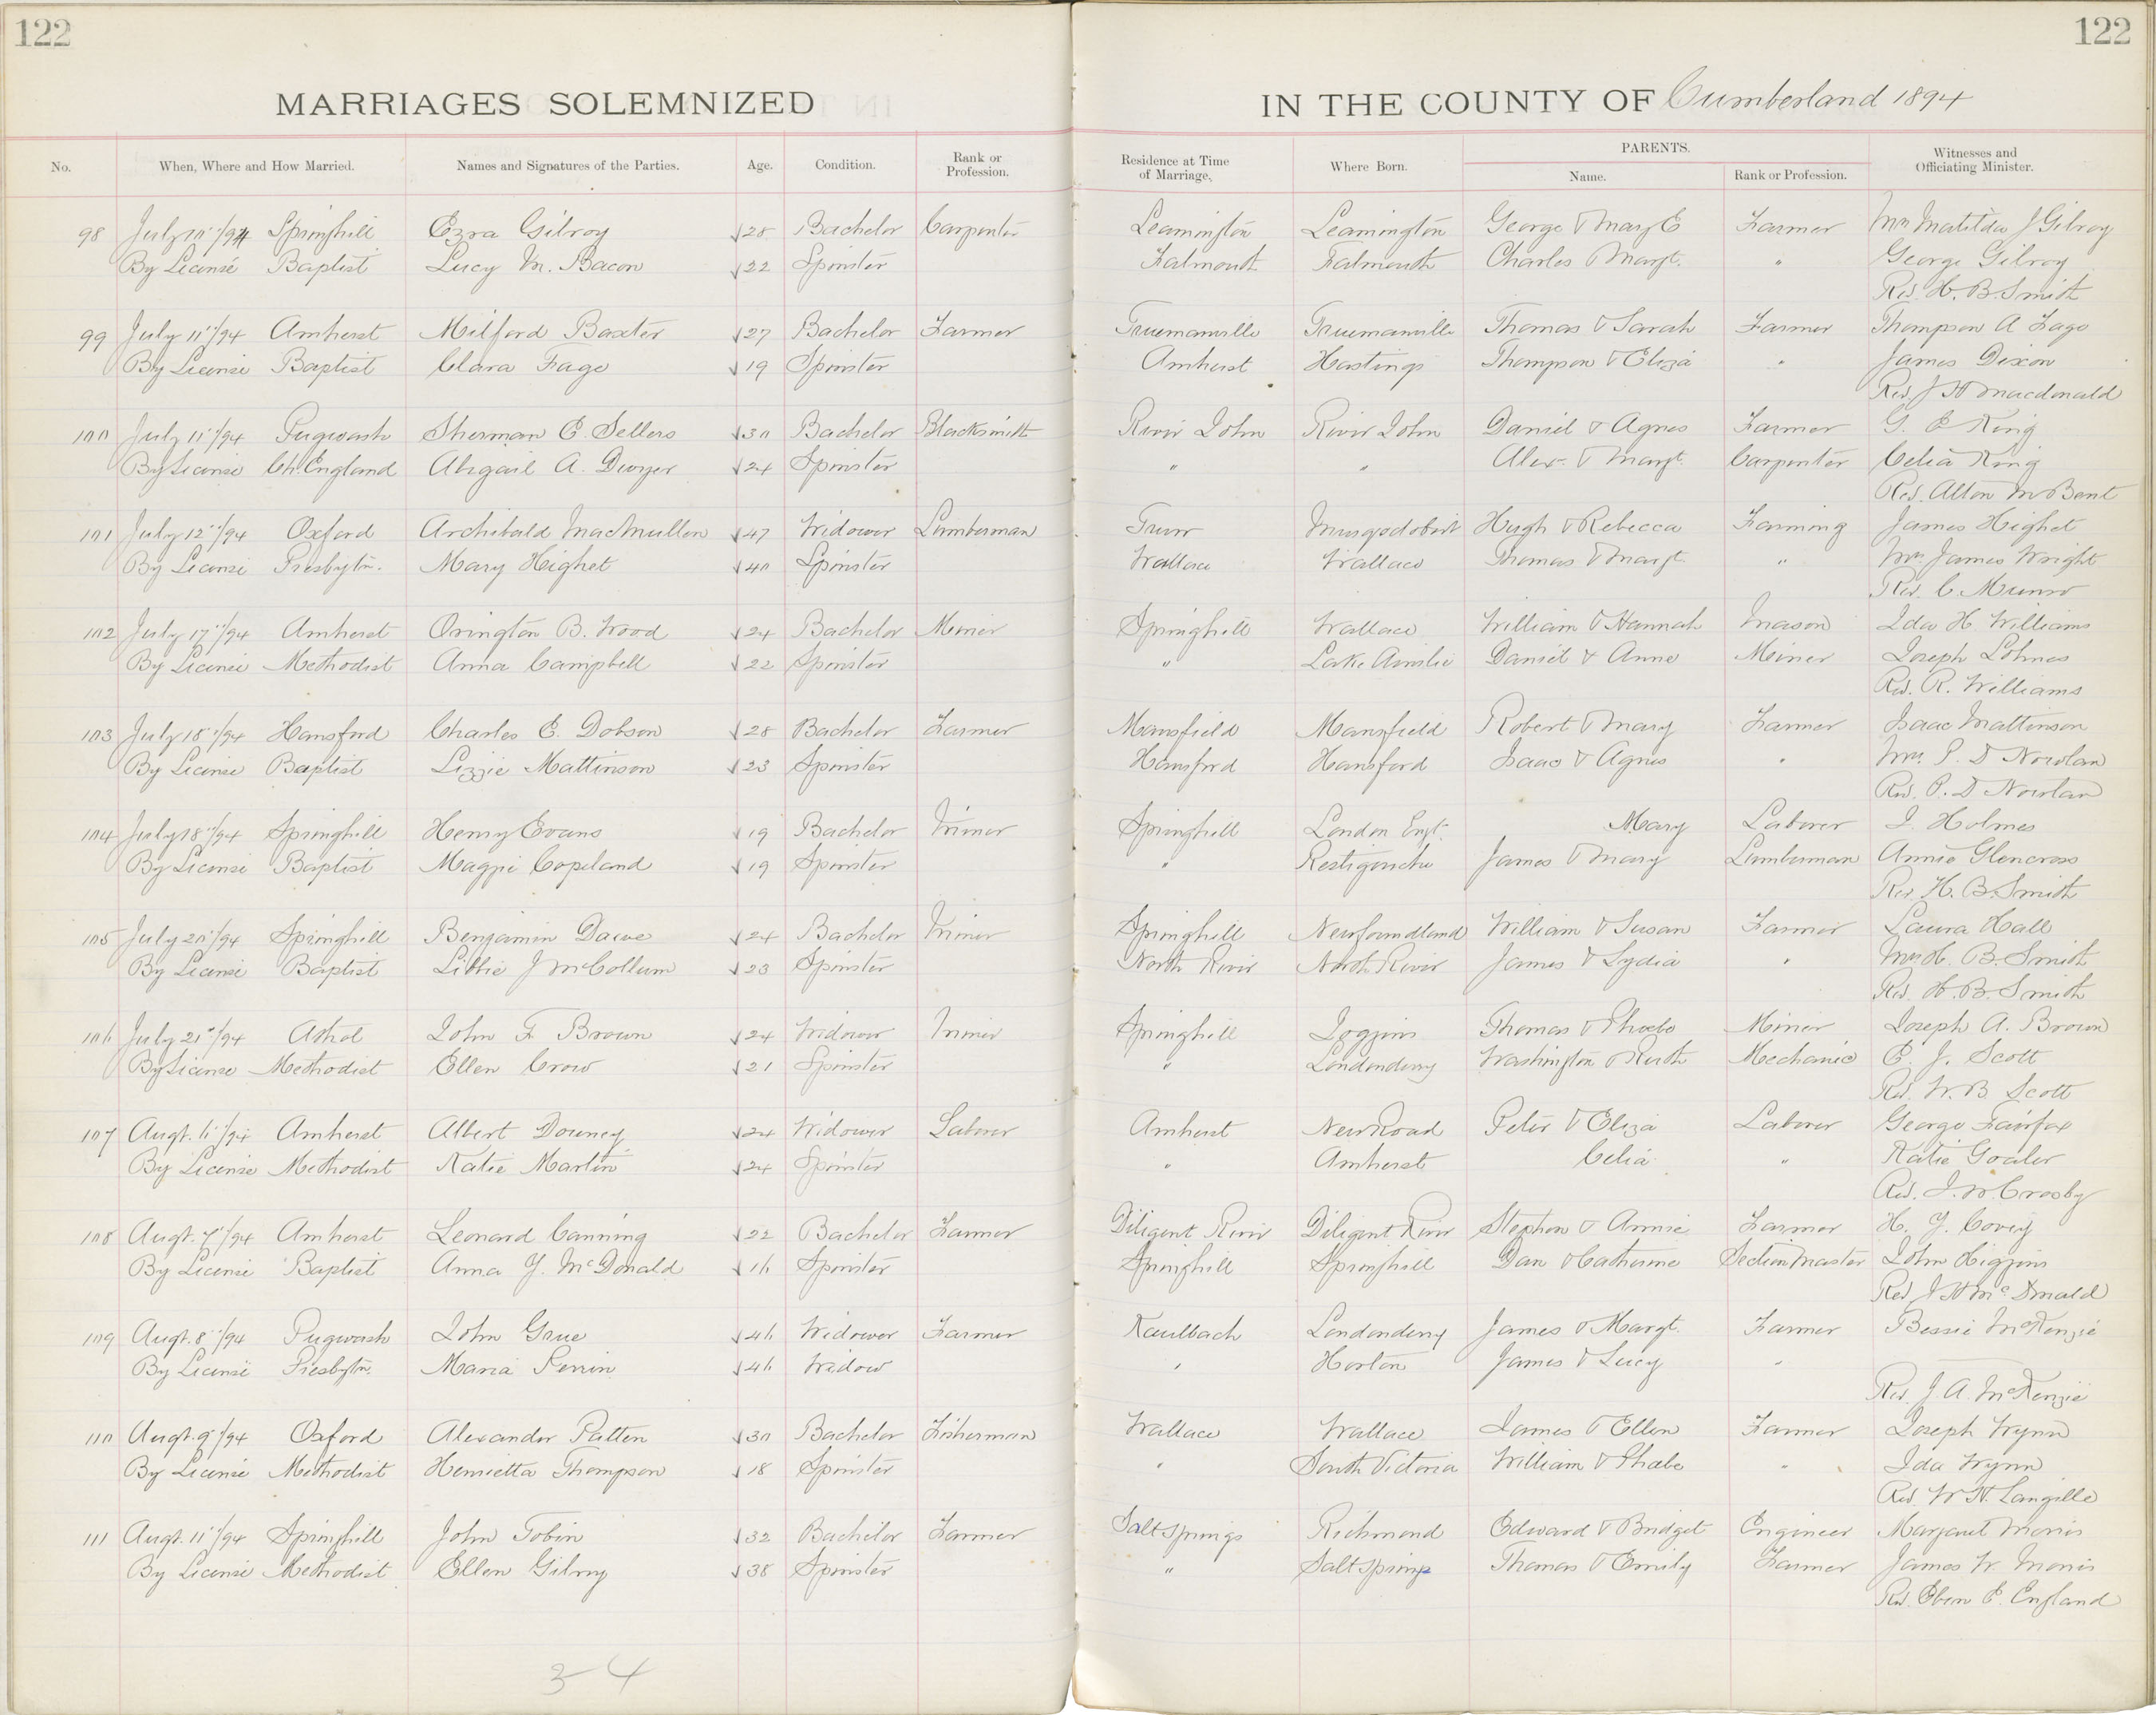 122 122
MARRIAGES SOLEMNIZED IN THE COUNTY OF Cumberland 1894
No. When, Where and How Married. Names and Signatures of the Parties. Age. Condition. Rank or Profession. Residence at Time of Marriage. Where Born. PARENTS. Name. Rank or Profession. Witnesses and Officiating Minister.
98 July 10"/94 Springhill Ezra Gilroy 28 Bachelor Carpenter Leamington Leamington George & Mary E Farmer Mrs Matilda J Gilroy
By License Baptist Lucy M. Bacon 22 Spinster Falmouth Falmouth Charles Margt. " George Gilroy
Rev. H. B. Smith
99 July 11"/94 Amherst Milford Baxter 27 Bachelor Farmer Truemanville Truemanville Thomas & Sarah Farmer Thompson A Fage
By License Baptist Clara Fage 19 Spinster Amherst Hastings Thompson & Eliza " James Dixon
Rev J H Macdonald
100 July 11"/94 Pugwash Sherman E. Sellers 30 Bachelor Blacksmith River John River John Daniel & Agnes Farmer G. E King
By License Ch. England Abigail A. Dwyer 24 Spinster " " Alex. & Margt. Carpenter Celia King
Rev. Alton M Bent
101 July 12"/94 Oxford Archibald MacMullen 47 Widower Lumberman Truro Musquodoboit Hugh & Rebecca Farming James Highet
By License Presbytn. Mary Highet 40 Spinster Wallace Wallace Thomas & Margt. " Mrs. James Wright
Rev. C Munro
102 July 17"/94 Amherst Orington B. Wood 24 Bachelor Miner Springhill Wallace William & Hannah Mason Ida H. Williams
By License Methodist Anna Campbell 22 Spinster " Lake Ainslie Daniel & Anne Miner Joseph Lohnes
Rev. R. Williams
103 July 18"/94 Hansford Charles E. Dobson 28 Bachelor Farmer Mansfield Mansfield Robert & Mary Farmer Isaac Mattinson
By License Baptist Lizzie Mattinson 23 Spinster Hansford Hansford Isaac & Agnes " Mrs. P. D Nowlan
Rev. P. D Nowlan
104 July 18"/94 Springhill Henry Evans 19 Bachelor Miner Springhill London Engl. Mary Laborer I. Holmes
By License Baptist Maggie Copeland 19 Spinster " Restigouche James & Mary Lumberman Annie Glencross
Rev H. B. Smith
105 July 20"/94 Springhill Benjamin Dawe 24 Bachelor Miner Springhill Newfoundland William & Susan Farmer Laura Hall
By License Baptist Libbie J McCollum 23 Spinster North River North River James & Lydia " Mrs H. B. Smith
Rev. H. B. Smith
106 July 21"/94 Athol John F. Brown 24 Widower Miner Springhill Joggins Thomas & Phoebe Miner Joseph A. Brown
By License Methodist Ellen Crow 21 Spinster " Londonderry Washington & Ruth Mechanic E. J. Scott
Rev. W. B Scott
107 Augt. 6"/94 Amherst Albert Downey 24 Widower Laborer Amherst New Road Peter & Eliza Laborer George Fairfax
By License Methodist Katie Martin 24 Spinster " Amherst Celia " Katie Goaler
Rev. J. W. Crosby
108 Augt. 7"/94 Amherst Leonard Canning 22 Bachelor Farmer Diligent River Diligent River Stephen & Annie Farmer H. Y. Covey
By License Baptist Anna Y. McDonald 16 Spinster Springhill Springhill Dan & Catherine Section Master John Higgins
Rev J H McDonald
109 Augt. 8"/94 Pugwash John Grue 46 Widower Farmer Kaulbach Londonderry James & Margt. Farmer Bessie McKenzie
By License Presbytn. Maria Perrin 46 Widow " Horton James & Lucy "
Rev. J. A. McKenzie
110 Augt. 9"/94 Oxford Alexander Patten 30 Bachelor Fisherman Wallace Wallace James & Ellen Farmer Joseph Wynn
By License Methodist Henrietta Thompson 18 Spinster " South Victoria William & Phebe " Ida Wynn
Rev. W H. Langille
111 Augt. 11"/94 Springhill John Tobin 32 Bachelor Farmer Salt Springs Richmond Edward & Bridget Engineer Margaret Morris
By License Methodist Ellen Gilroy 38 Spinster " Salt Springs Thomas & Emily Farmer James W. Morris
Rev. Eben E. England
3-4